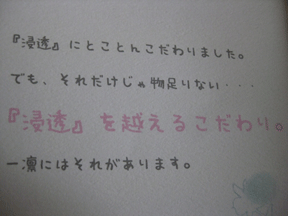 『浸透』にとことんこだわりました。
でも、それだけじゃ物足りない・・・
『浸透』を越えるこだわり。
一凛にはそれがあります。